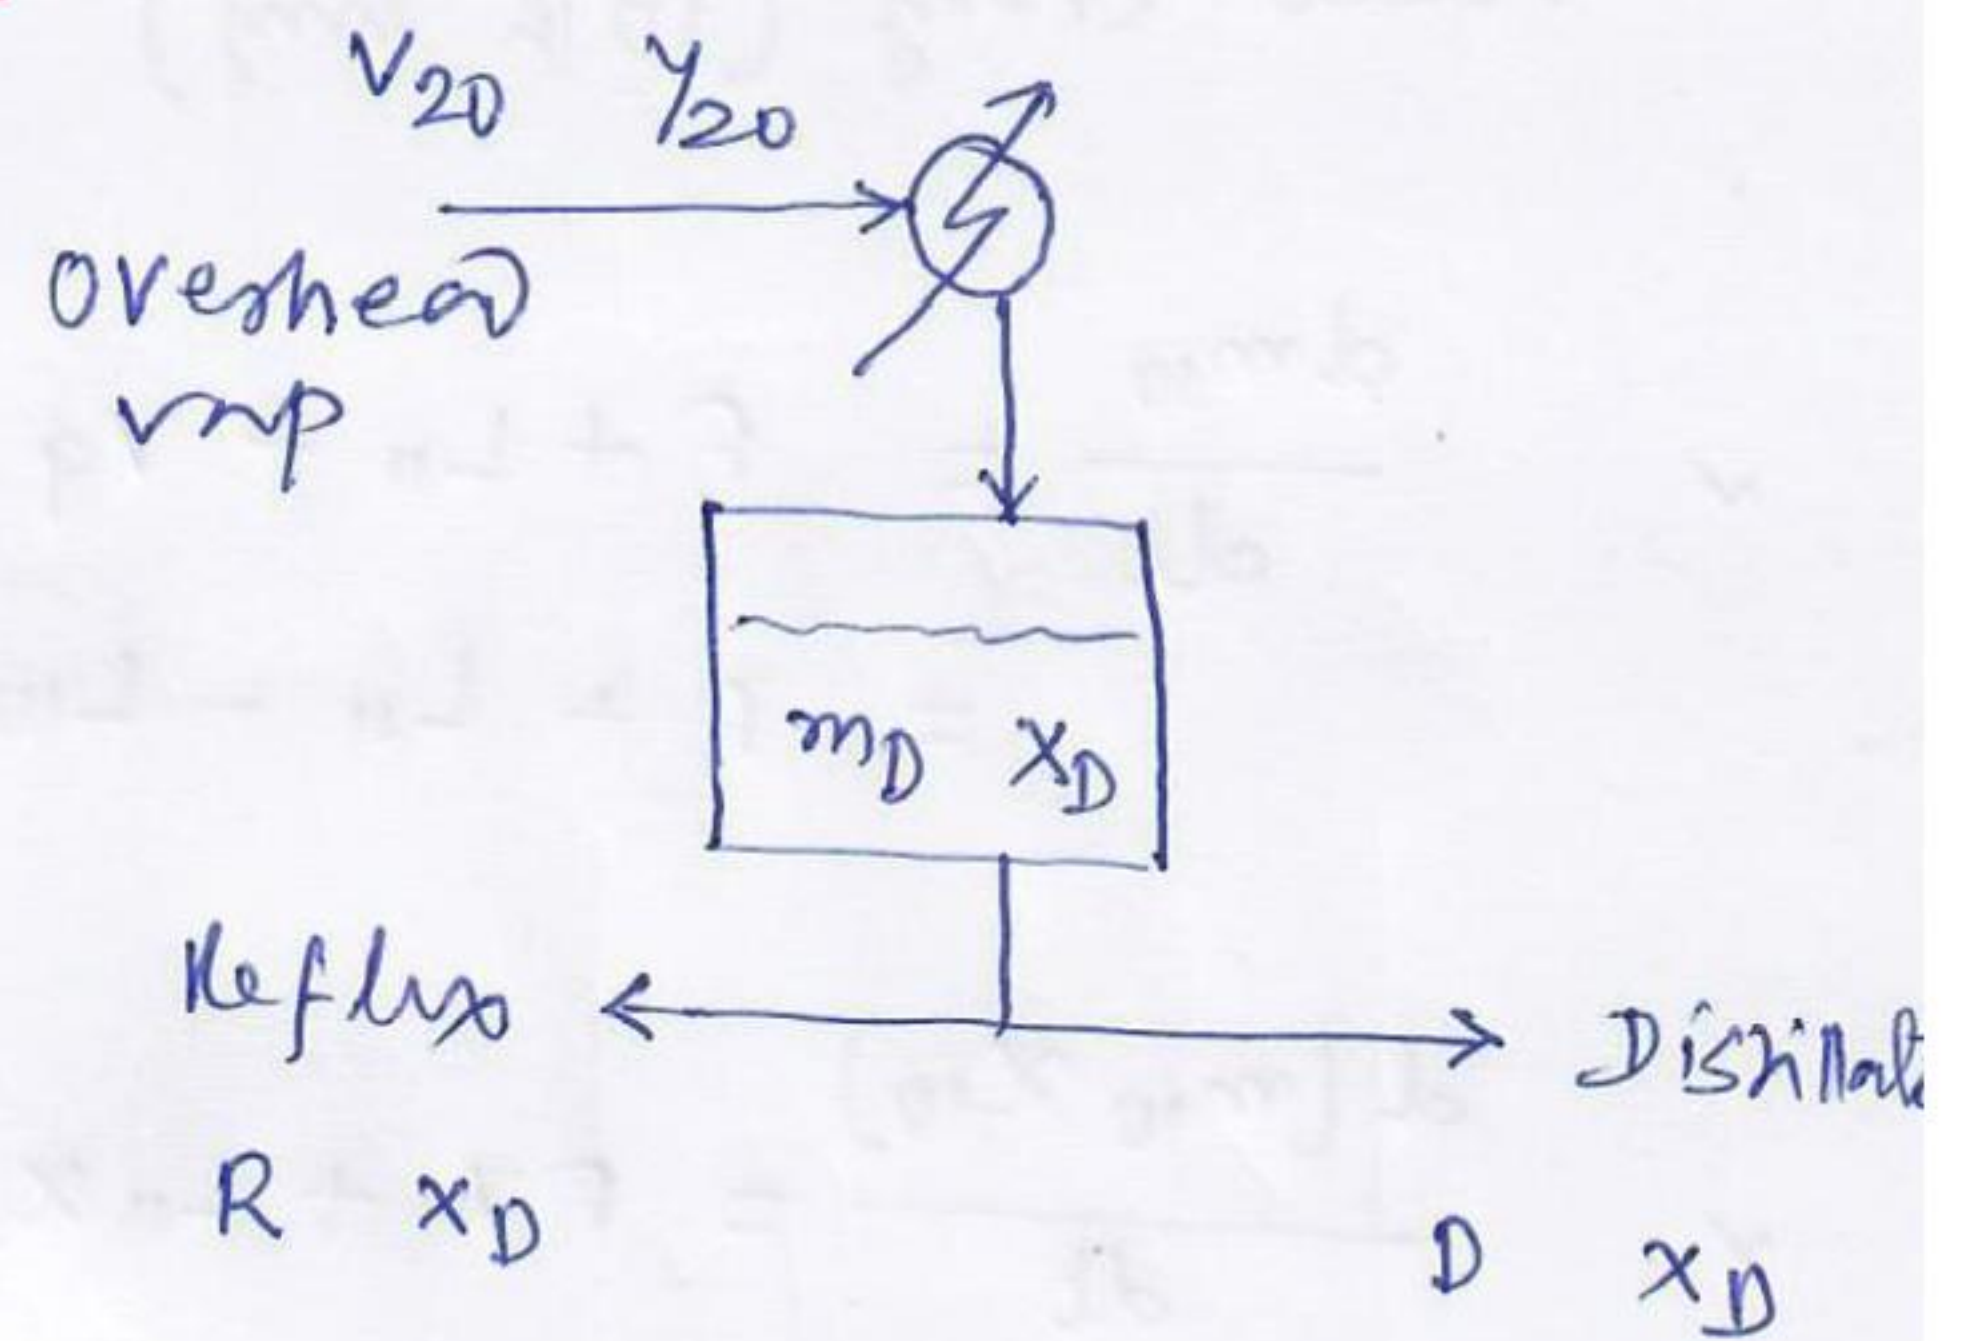 V20 Y20
Overhead
vap
mD XD
Reflux
R XD
Distillate
D XD